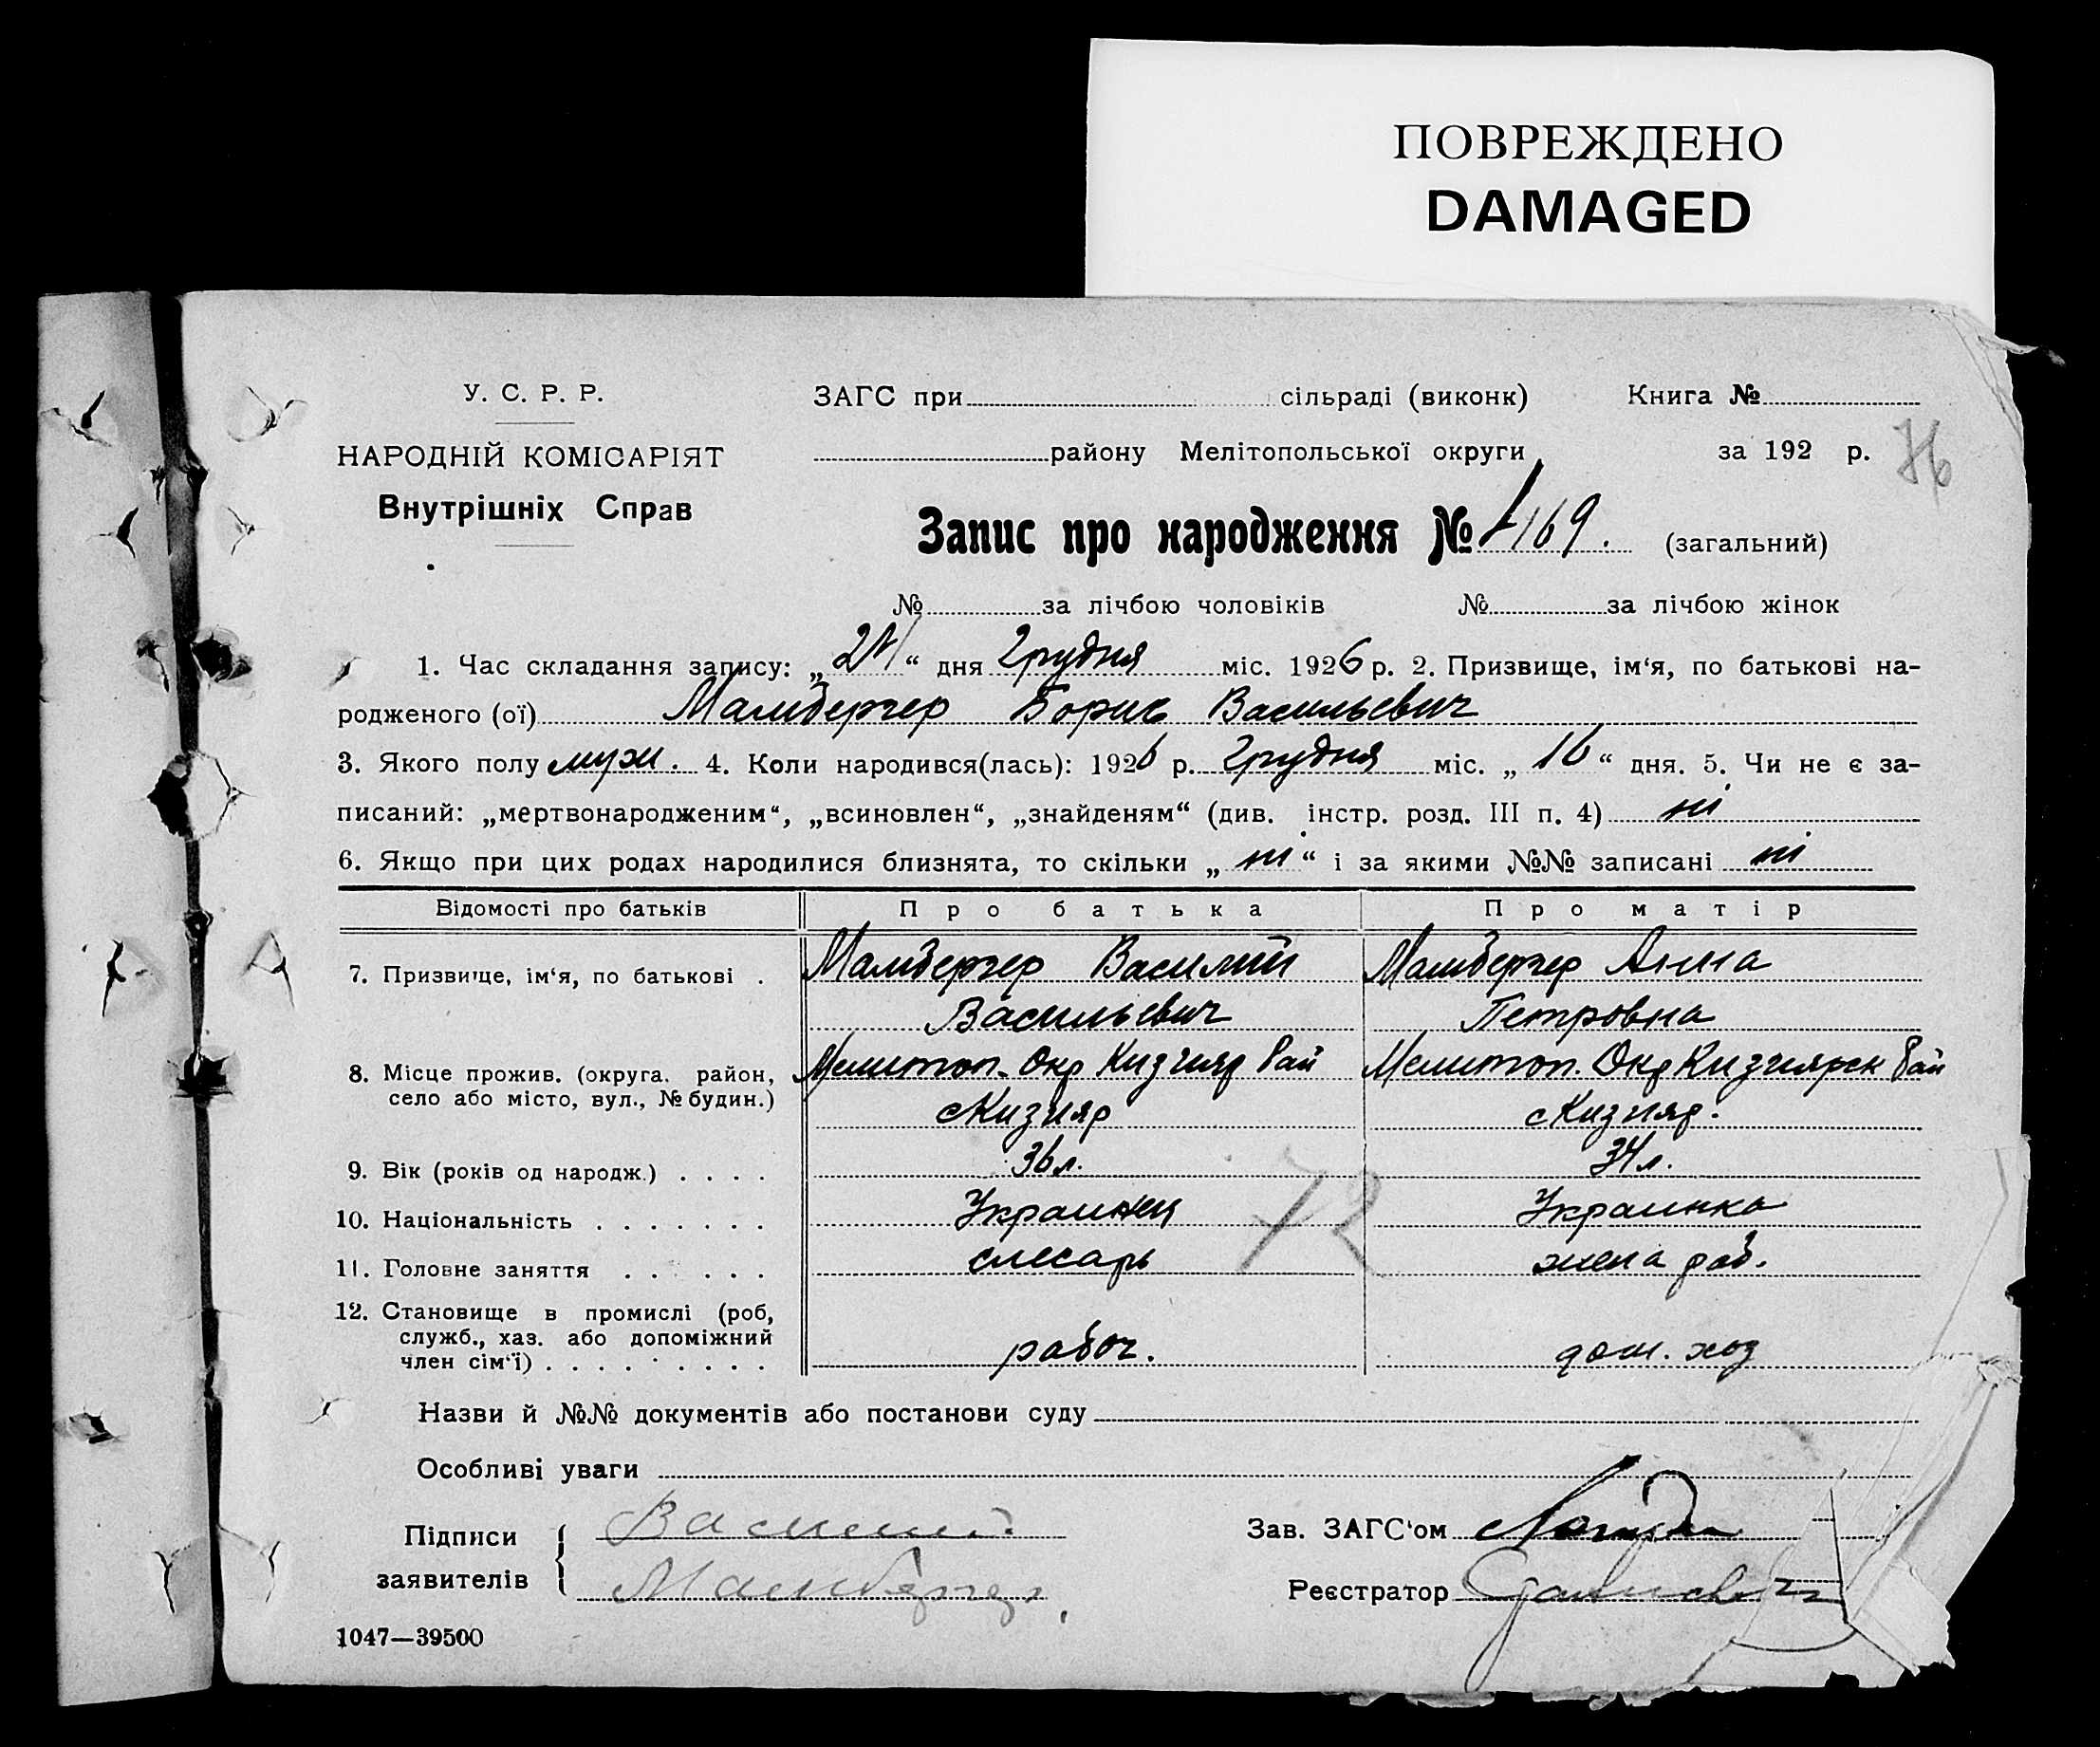 ПОВРЕЖДЕНО
DAMAGED
У. С. Р. Р.
НАРОДНІЙ КОМІСАРІЯТ
Внутрішніх Справ
ЗАГС при сільраді (виконк) Книга №
району Мелітопольської округи за 192 р.
76
Запис про народження № 169. (загальний)
№ за лічбою чоловіків № за лічбою жінок
1. Час складання запису: „ “ дня Грудня міс. 1926 р. 2. Призвище, ім‘я, по батькові на-
родженого (ої) Мамбергер Борис Васильевич
3. Якого полу муж. 4. Коли народився(лась): 1926 р. Грудня міс. „ 16 “ дня. 5. Чи не є за-
писаний: „мертвонародженим“, „всиновлен“, „знайденям“ (див. інстр. розд. III п. 4) ні
6. Якщо при цих родах народилися близнята, то скільки „ ні “ і за якими №№ записані ні
Відомості про батьків Про батька Про матір
7. Призвище, ім‘я, по батькові . Мамбергер Василий Мамбергер Анна
Васильевич Петровна
8. Місце прожив. (округа. район, село або місто, вул., № будин.) Мелитоп. Окр Кизияр Рай Мелитоп. Окр Кизиярск Рай
с Кизияр с Кизияр.
9. Вік (років од народж.) . . . . 36 л. 34 л.
10. Національність . . . . . . . Украинец Украинка
11. Головне заняття . . . . . . слесарь жена раб.
72
12. Становище в промислі (роб,
служб., хаз. або допоміжний
член сім‘ї) . . . . . . . . . рабоч. дом. хоз
Назви й №№ документів або постанови суду
Особливі уваги
Підписи заявителів { Василий Мамбергер
Зав. ЗАГС‘ом
Реєстратор
1047—39500